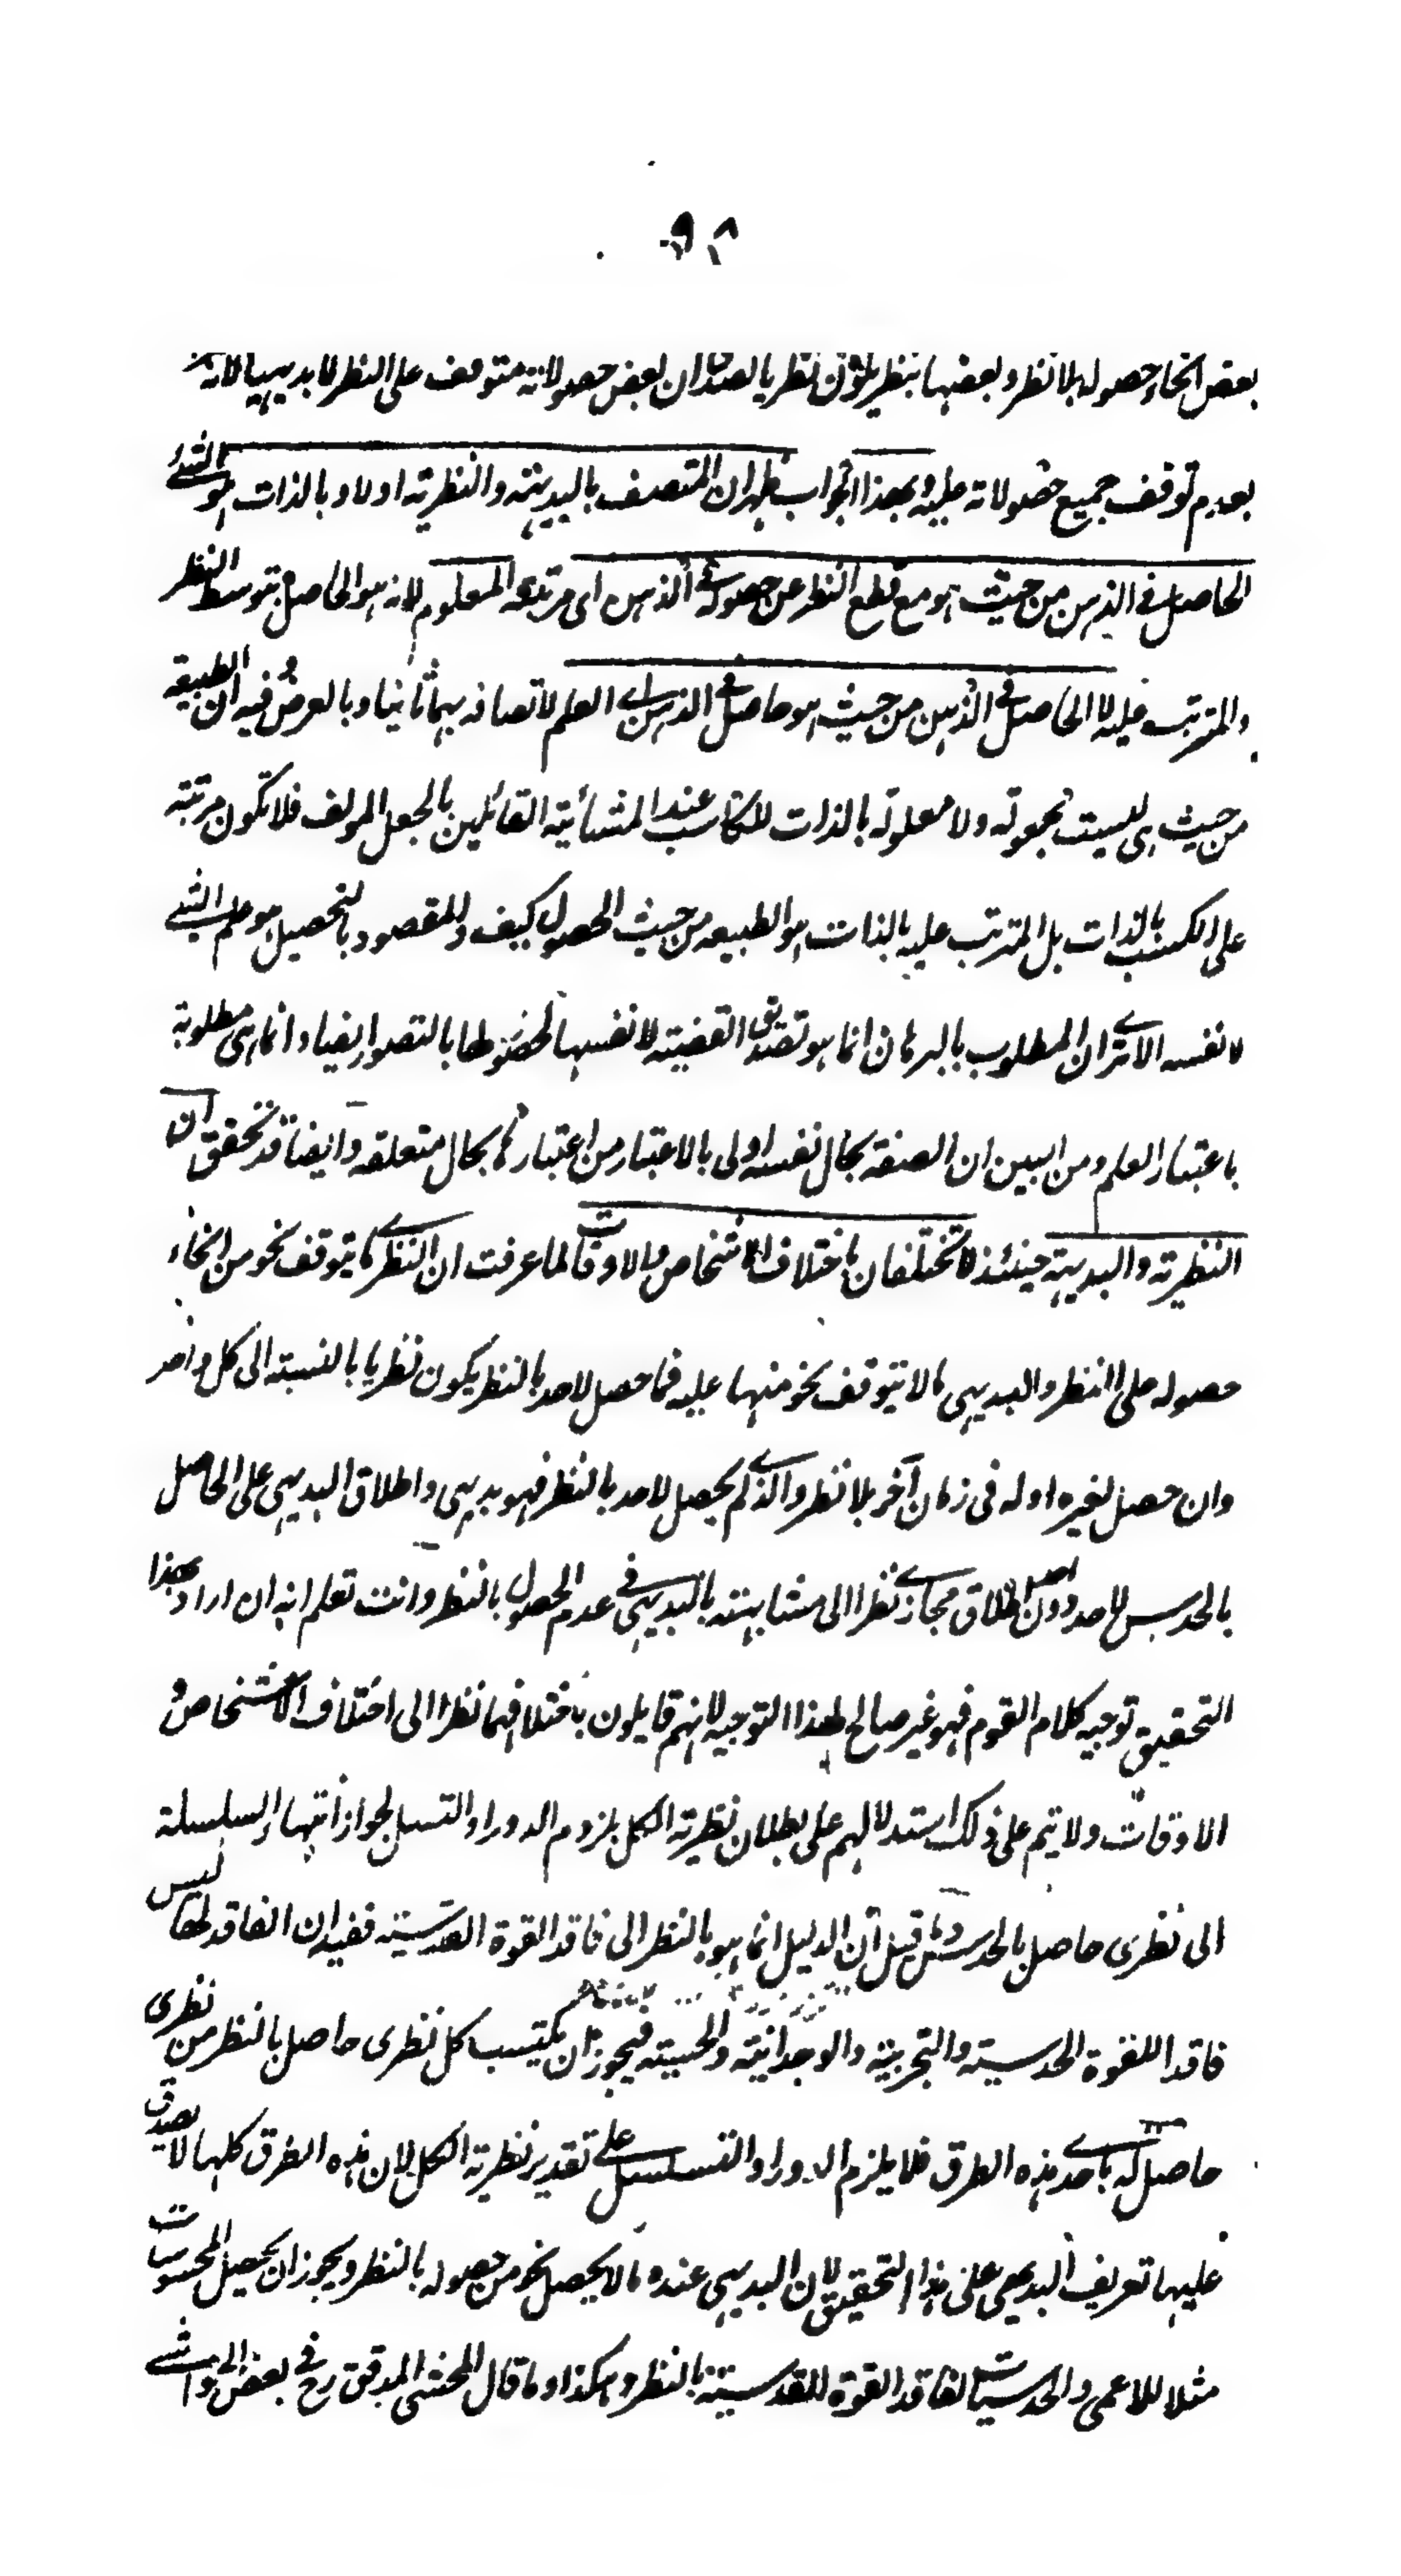 ٩٨
بعض انحاء حصوله بلا نظر وبعضها بنظر يكون نظريا لصدق ان بعض حصولاته متوقف على النظر لا بديهيا لانه
بعدم توقف جميع حصولاته عليه وبهذا الجواب ظهر ان المتصف بالبديهية والنظرية اولا وبالذات هو الشئ
الحاصل فى الذهن من حيث هو مع قطع النظر عن حصوله فى الذهن اى مرتبة المعلوم لانه هو الحاصل بتوسط النظر
والمترتب عليه لا الحاصل فى الذهن من حيث هو حاصل فى الذهن اى العلم لاتصافه بهما ثانيا وبالعرض وفيه ان الطبيعة
من حيث هى ليست مجعولة ولا معلولة بالذات للكاسب عند المشائية القائلين بالجعل المولف فلا تكون مرتبة
على الكسب بالذات بل المترتب عليه بالذات هو الطبيعه من حيث الحصول كيف والمقصود بالتحصيل هو علم الشئ
لا نفسه الا ترى ان المطلوب بالبرهان انما هو تصديق القضية لا نفسها لحصولها بالتصور ايضا وانما هى مطلوبة
باعتبار العلم ومن البين ان الصفة بحال نفسه اولى بالاعتبار من اعتبارها بحال متعلقه وايضا قد تحقق ان
النظرية والبديهية حينئذ لا تختلفان باختلاف الاشخاص والاوقات لما عرفت ان النظرى ما يتوقف نحو من انحاء
حصوله على النظر والبديهى ما لا يتوقف نحو منها عليه فما حصل لاحد بالنظر يكون نظريا بالنسبة الى كل واحد
وان حصل لغيره او له فى زمان آخر بلا نظر والذى لم يحصل لاحد بالنظر فهو بديهى واطلاق البديهى على الحاصل
بالحدس لاحد دون احد اطلاق مجازى نظرا الى مشابهته بالبديهى فى عدم الحصول بالنظر وانت تعلم انه ان اراد بهذا
التحقيق توجيه كلام القوم فهو غير صالح لهذا التوجيه لانهم قايلون باختلافهما نظرا الى اختلاف الاشخاص و
الاوقات ولا يتم على ذلك استدلالهم على بطلان نظرية الكل بلزوم الدور او التسلسل لجواز انتهاء السلسلة
الى نظرى حاصل بالحدس وما قيل ان الدليل انما هو بالنظر الى فاقد القوة القدسية ففيه ان الفاقد لها ليس
فاقدا للقوة الحدسية والتجربية والوجدانية والحسية فيجوز ان يكتسب كل نظرى حاصل بالنظر من نظرى
حاصل له باحدى هذه الطرق فلا يلزم الدور او التسلسل على تقدير نظرية الكل لان هذه الطرق كلها لا يصدق
عليها تعريف البديهى على هذا التحقيق لان البديهى عنده ما لا يحصل نحو من حصوله بالنظر ويجوز ان يحصل المحسوسات
مثلا للاعمى والحدسيات لفاقد القوة القدسية بالنظر وهكذا وما قال المحشى المدقق رح فى بعض الحواشى